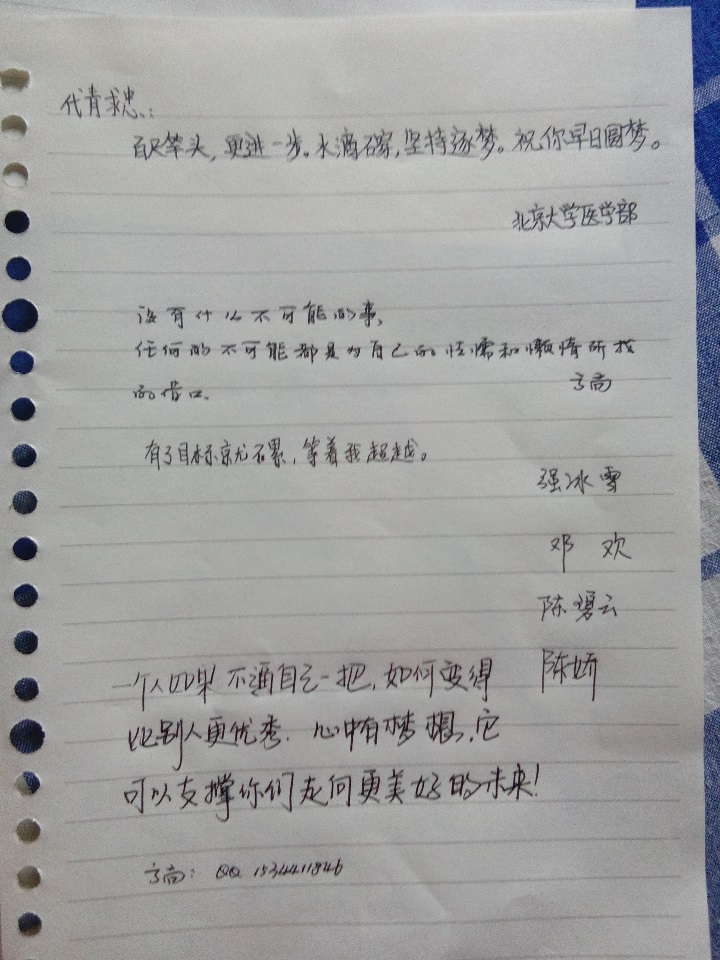 代青求忠:
百尺竿头,更进一步。水滴石穿,坚持逐梦。祝你早日圆梦。
北京大学医学部
没有什么不可能的事,
任何的不可能都是为自己的怯懦和懒惰所找
的借口。 方向
有了目标就不累,等着我超越。
强冰雪
邓 欢
陈碧云
陈娇
一个人如果不逼自己一把,如何变得
比别人更优秀. 心中有梦想,它
可以支撑你们走向更美好的未来!
方向: QQ